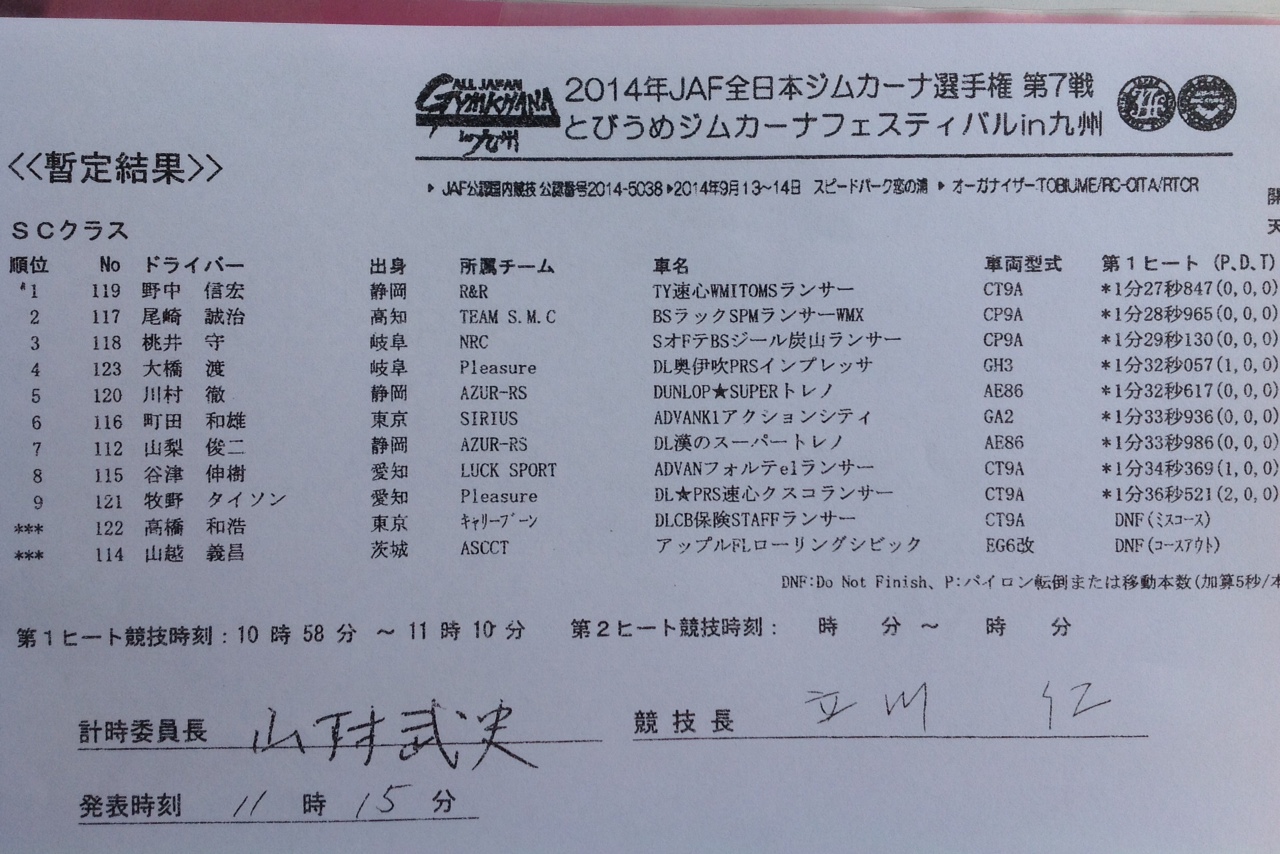 ALL JAPAN
GYMKHANA
in九州
2014年JAF全日本ジムカーナ選手権 第7戦
とびうめジムカーナフェスティバルin九州
<<暫定結果>>
JAF公認国内競技 公認番号2014-5038 ▶2014年9月13~14日 スピードパーク恋の浦 ▶ オーガナイザー:TOBIUME/RC-OITA/RTCR
SCクラス
順位 No ドライバー 出身 所属チーム 車名 車両型式 第1ヒート (P、D、T)
1 119 野中 信宏 静岡 R&R TY速心WMITOMSランサー CT9A *1分27秒847(0,0,0)
2 117 尾崎 誠治 高知 TEAM S.M.C BSラックSPMランサーWMX CP9A *1分28秒965(0,0,0)
3 118 桃井 守 岐阜 NRC SオFテBSジール炭山ランサー CP9A *1分29秒130(0,0,0)
4 123 大橋 渡 岐阜 Pleasure DL奥伊吹PRSインプレッサ GH3 *1分32秒057(1,0,0)
5 120 川村 徹 静岡 AZUR-RS DUNLOP★SUPERトレノ AE86 *1分32秒617(0,0,0)
6 116 町田 和雄 東京 SIRIUS ADVANK1アクションシティ GA2 *1分33秒936(0,0,0)
7 112 山梨 俊二 静岡 AZUR-RS DL漢のスーパートレノ AE86 *1分33秒986(0,0,0)
8 115 谷津 伸樹 愛知 LUCK SPORT ADVANフォルテe1ランサー CT9A *1分34秒369(1,0,0)
9 121 牧野 タイソン 愛知 Pleasure DL★PRS速心クスコランサー CT9A *1分36秒521(2,0,0)
*** 122 高橋 和浩 東京 ｷｬﾘｰﾌﾞｰﾝ DLCB保険STAFFランサー CT9A DNF(ﾐｽｺｰｽ)
*** 114 山越 義昌 茨城 ASCCT アップルFLローリングシビック EG6改 DNF(ｺｰｽｱｳﾄ)
DNF:Do Not Finish、P:パイロン転倒または移動本数(加算5秒/本
第1ヒート競技時刻:10 時 58 分 ~ 11 時 10 分 第2ヒート競技時刻: 時 分 ~ 時 分
計時委員長 山村武史 競技長 立川 仁
発表時刻 11 時 15 分